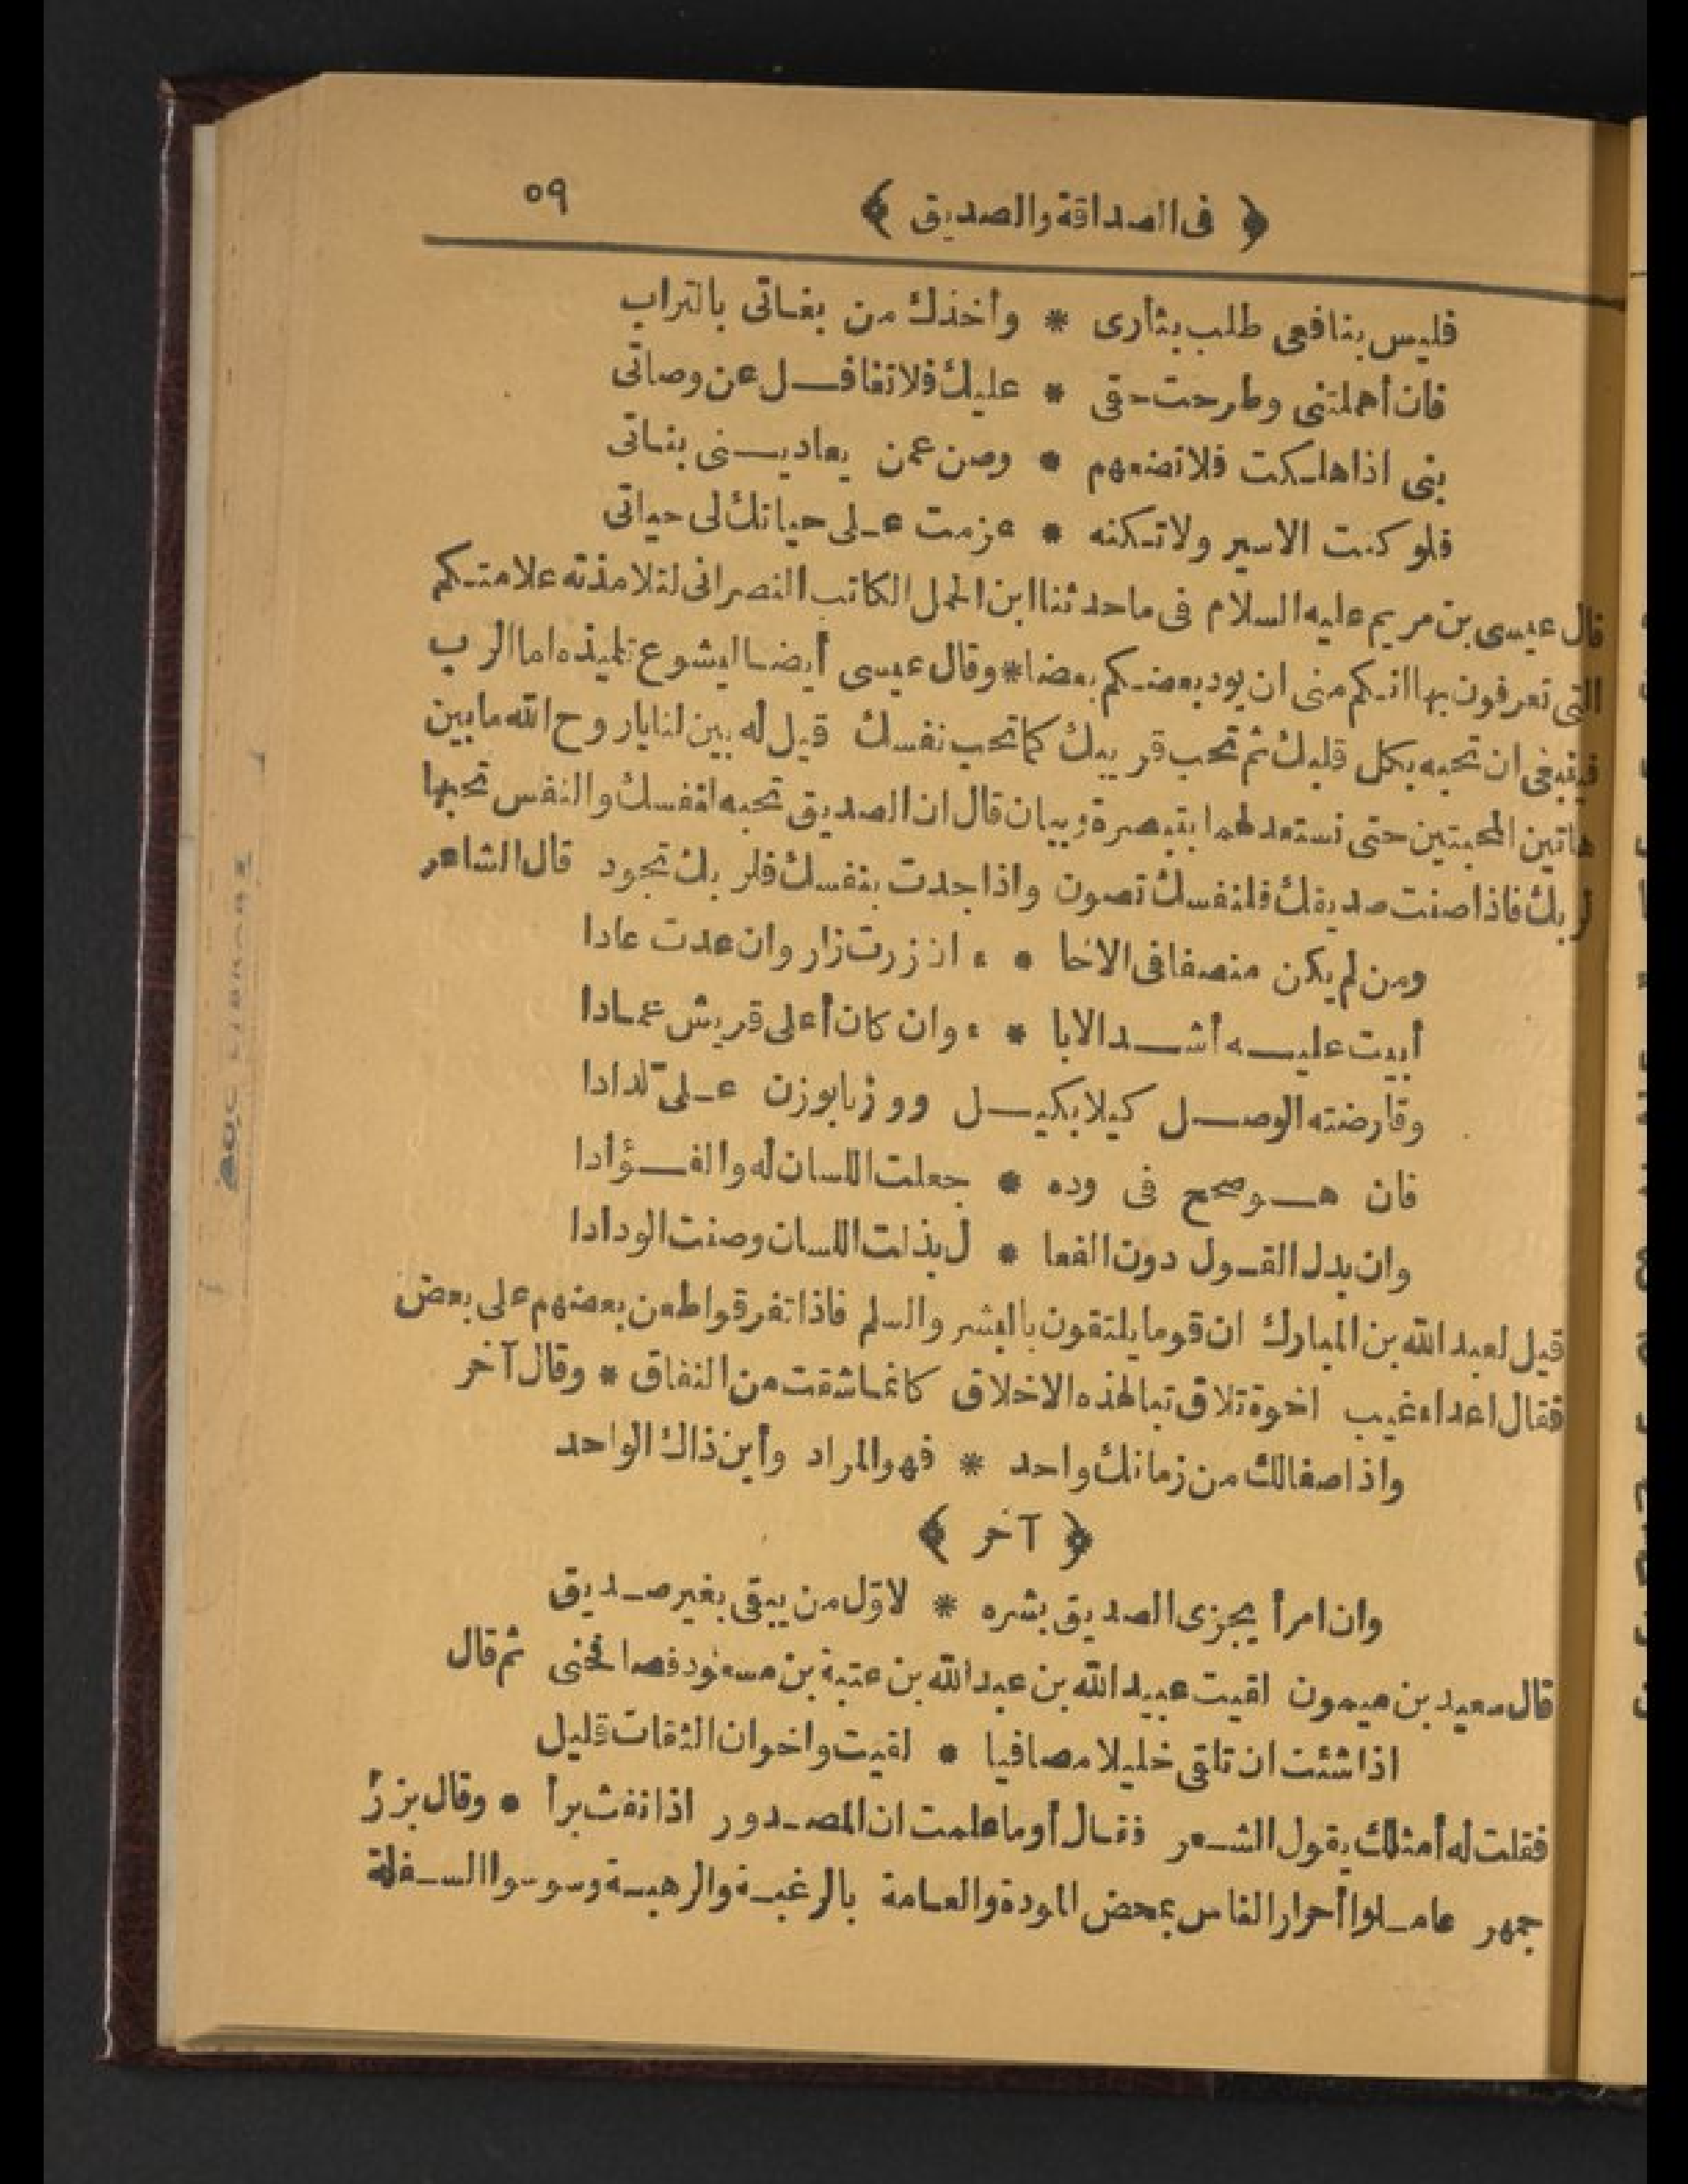 ﴿ فى الصداقة والصديق ﴾ ٥٩
فليس بنافعى طلب بثارى * وأخذك من بغاتى بالتراب
فان أهملتنى وطرحت حقى * عليك فلا تغافل عن وصاتى
بنى اذا هلكت فلا تضعهم * وصن عمن يعادينى بناتى
فلو كنت الاسير ولا تكنه * عزمت على حياتك لى حياتى
قال عيسى بن مريم عليه السلام فى ما حدثنا ابن الجمل الكاتب النصرانى لتلامذته علامتكم
التى تعرفون بها انكم منى ان يود بعضكم بعضا * وقال عيسى أيضا ليشوع تلميذه اما الرب
فينبغى ان تحبه بكل قلبك ثم تحب قريبك كما تحب نفسك قيل له بين لنا يا روح الله ما بين
هاتين المحبتين حتى نستعد لهما بتبصرة وبيان قال ان الصديق تحبه لنفسك والنفس تحبها
لربك فاذا صنت صديقك فلنفسك تصون واذا جدت بنفسك فلربك تجود قال الشاعر
ومن لم يكن منصفا فى الاخا * ء ان زرت زار وان عدت عادا
أبيت عليه أشد الابا * ء وان كان أعلى قريش عمادا
وقارضته الوصل كيلا بكيل ووزنا بوزن على لدادا
فان هو صحح فى وده * جعلت اللسان له والفؤادا
وان بدل القول دون الفعا * ل بذلت اللسان وصنت الودادا
قيل لعبد الله بن المبارك ان قوما يلتقون بالبشر والسلم فاذا تفرقوا طعن بعضهم على بعض
فقال اعداء غيب اخوة تلاق تبا لهذه الاخلاق كانما شقت من النفاق * وقال آخر
واذا صفا لك من زمانك واحد * فهو المراد وأين ذاك الواحد
﴿ آخر ﴾
وان امرأ يجزى الصديق بشره * لاوّل من يبقى بغير صديق
قال سعيد بن ميمون لقيت عبيد الله بن عبد الله بن عتبة بن مسعود فصافحنى ثم قال
اذا شئت ان تلقى خليلا مصافيا * لقيت واخوان الثقات قليل
فقلت له أمثلك يقول الشعر فقال أوما علمت ان المصدور اذا نفث برأ * وقال بزر
جمهر عاملوا أحرار الناس بمحض المودة والعامة بالرغبة والرهبة وسوسوا السفلة